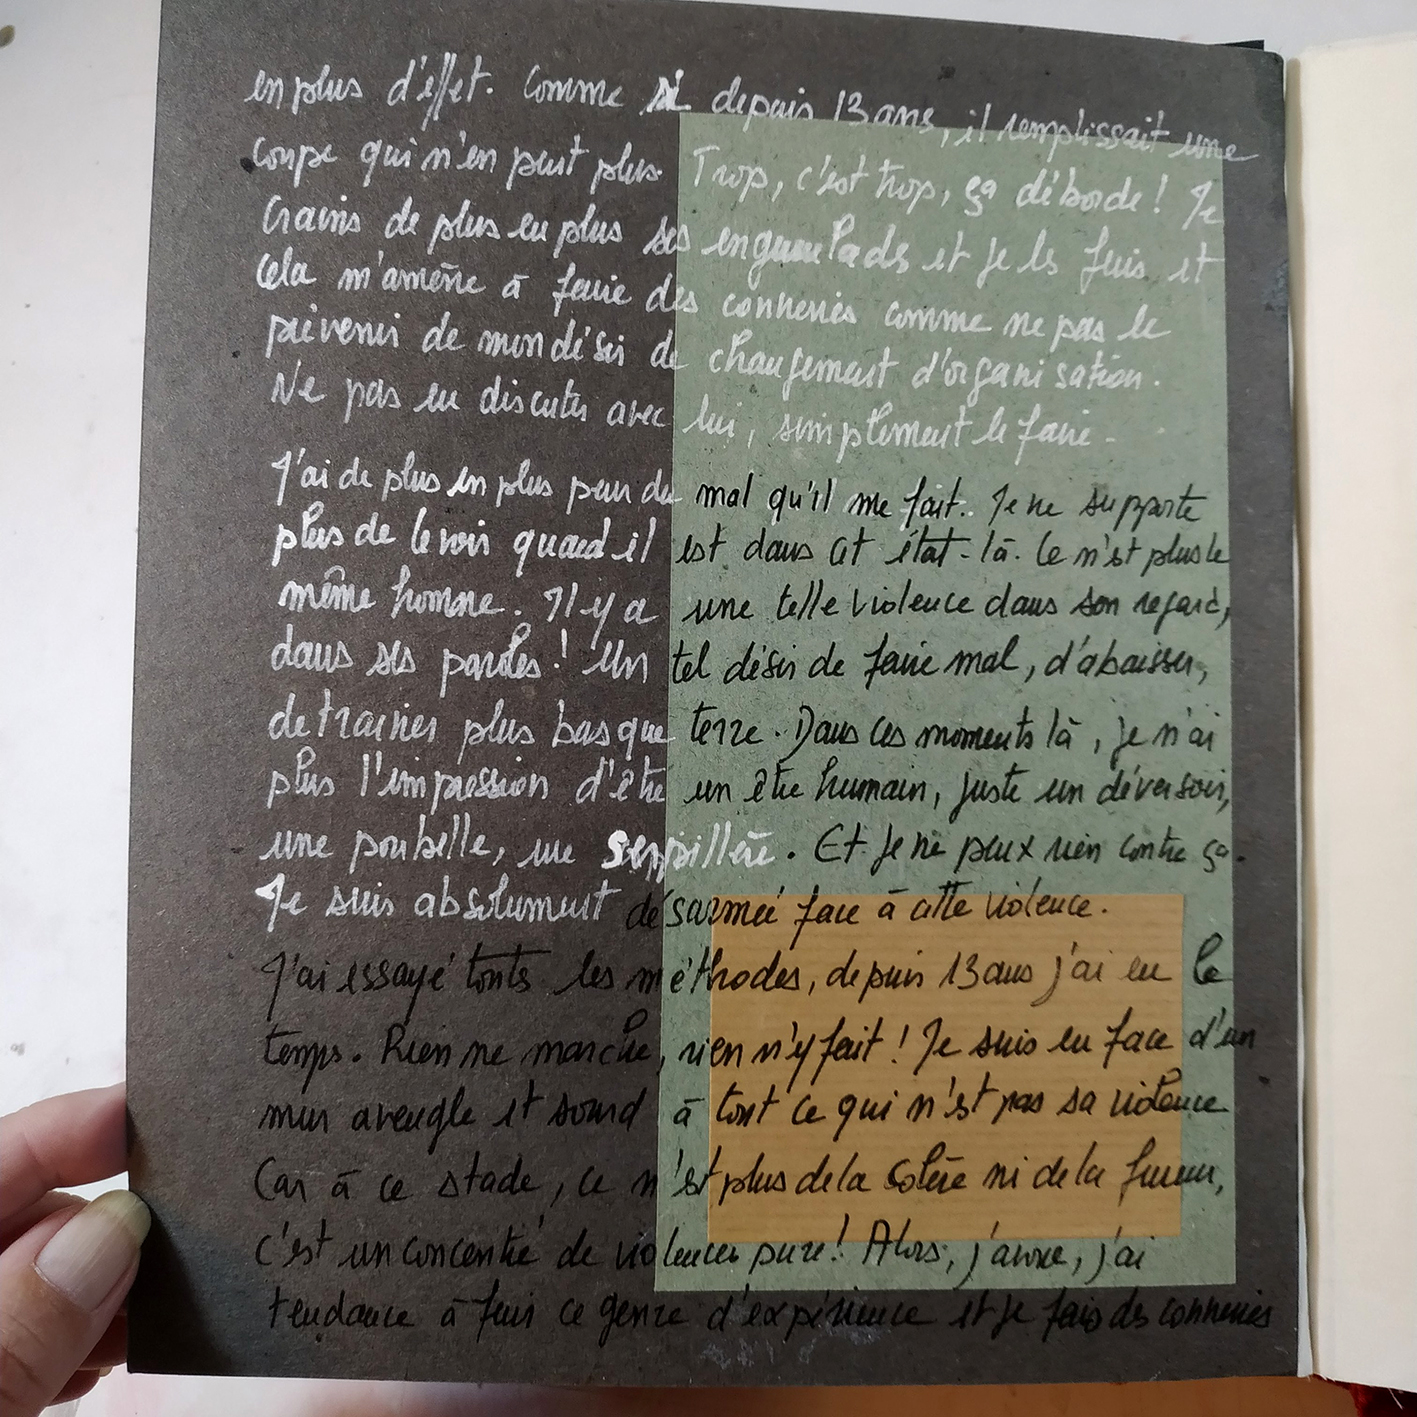 en plus d'effet. Comme si depuis 13 ans, il remplissait une
coupe qui n'en peut plus. Trop, c'est trop, ça déborde ! Je
crains de plus en plus ses engueulades et je les fuis et
cela m'amène à faire des conneries comme ne pas le
prévenir de mon désir de changement d'organisation.
Ne pas en discuter avec lui, simplement le faire.
J'ai de plus en plus peur du mal qu'il me fait.. Je ne supporte
plus de le voir quand il est dans cet état-là. Ce n'est plus le
même homme. Il y a une telle violence dans son regard,
dans ses paroles ! Un tel désir de faire mal, d'abaisser,
de trainer plus bas que terre. Dans ces moments là, je n'ai
plus l'impression d'être un être humain, juste un déversoir,
une poubelle, une serpillère. Et je ne peux rien contre ça.
Je suis absolument désarmée face à cette violence.
J'ai essayé touts les méthodes, depuis 13 ans j'ai eu le
temps. Rien ne marche, rien n'y fait ! Je suis en face d'un
mur aveugle et sourd à tout ce qui n'est pas sa violence
Car à ce stade, ce n'est plus de la colère ni de la fureur,
c'est un concentré de violences pure ! Alors, j'avoue, j'ai
tendance à fuir ce genre d'expérience et je fais des conneries